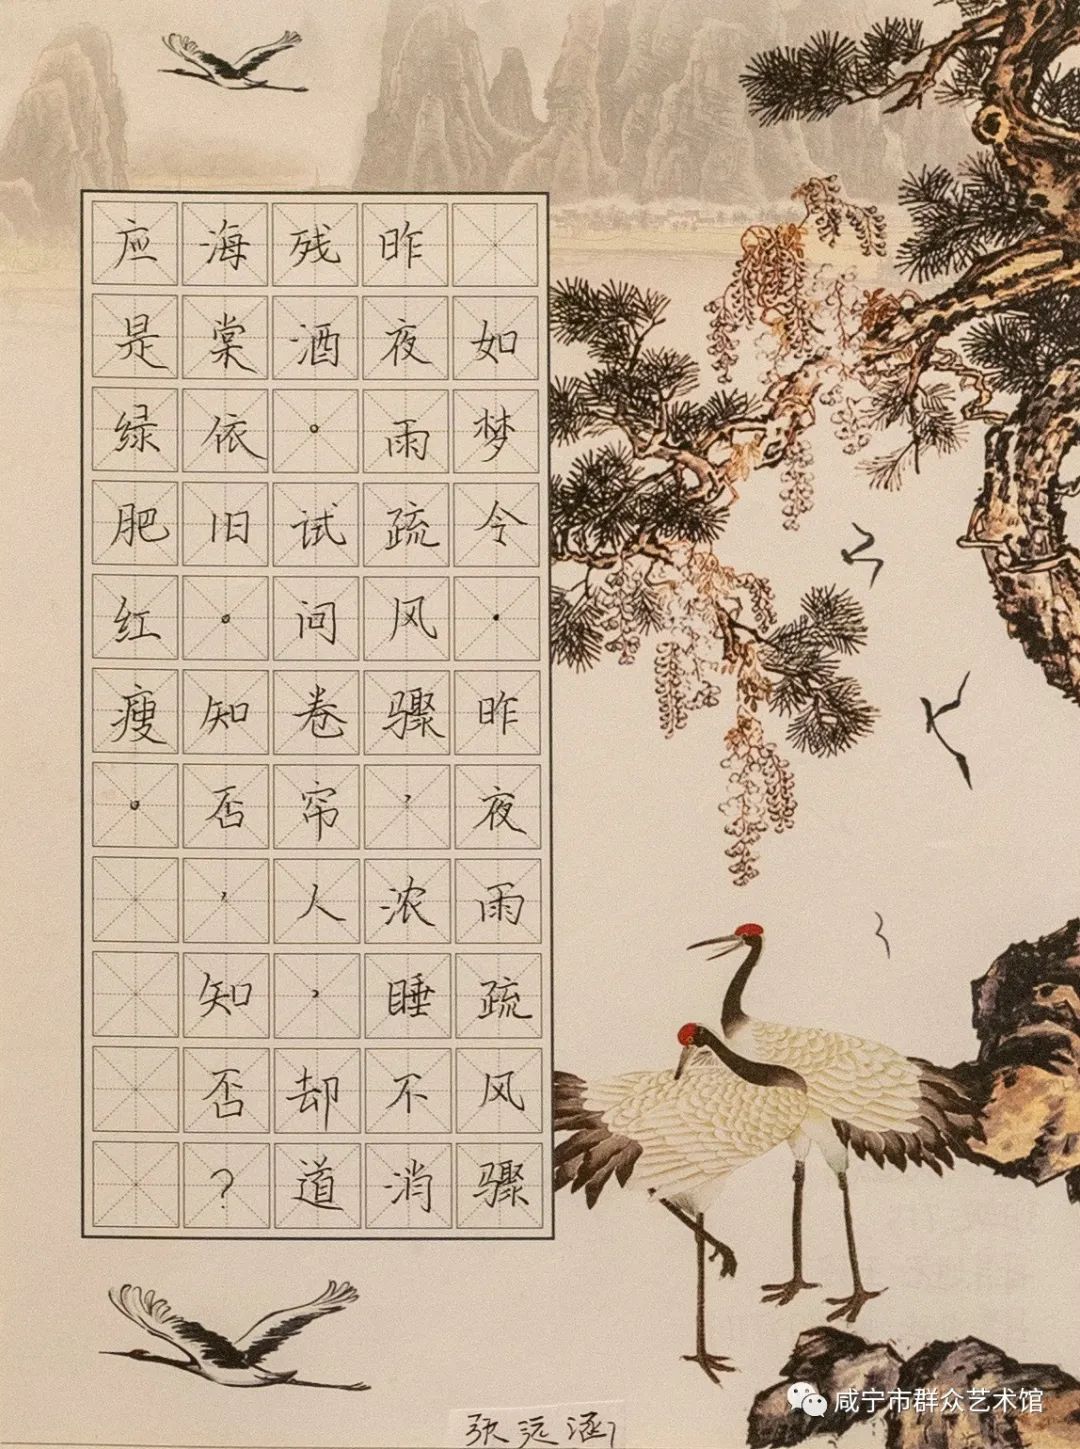 如梦令·昨夜雨疏风骤
昨夜雨疏风骤，浓睡不消
残酒。试间卷帘人，却道
海棠依旧。知否，知否？
应是绿肥红瘦。
张远涵
咸宁市群众艺术馆